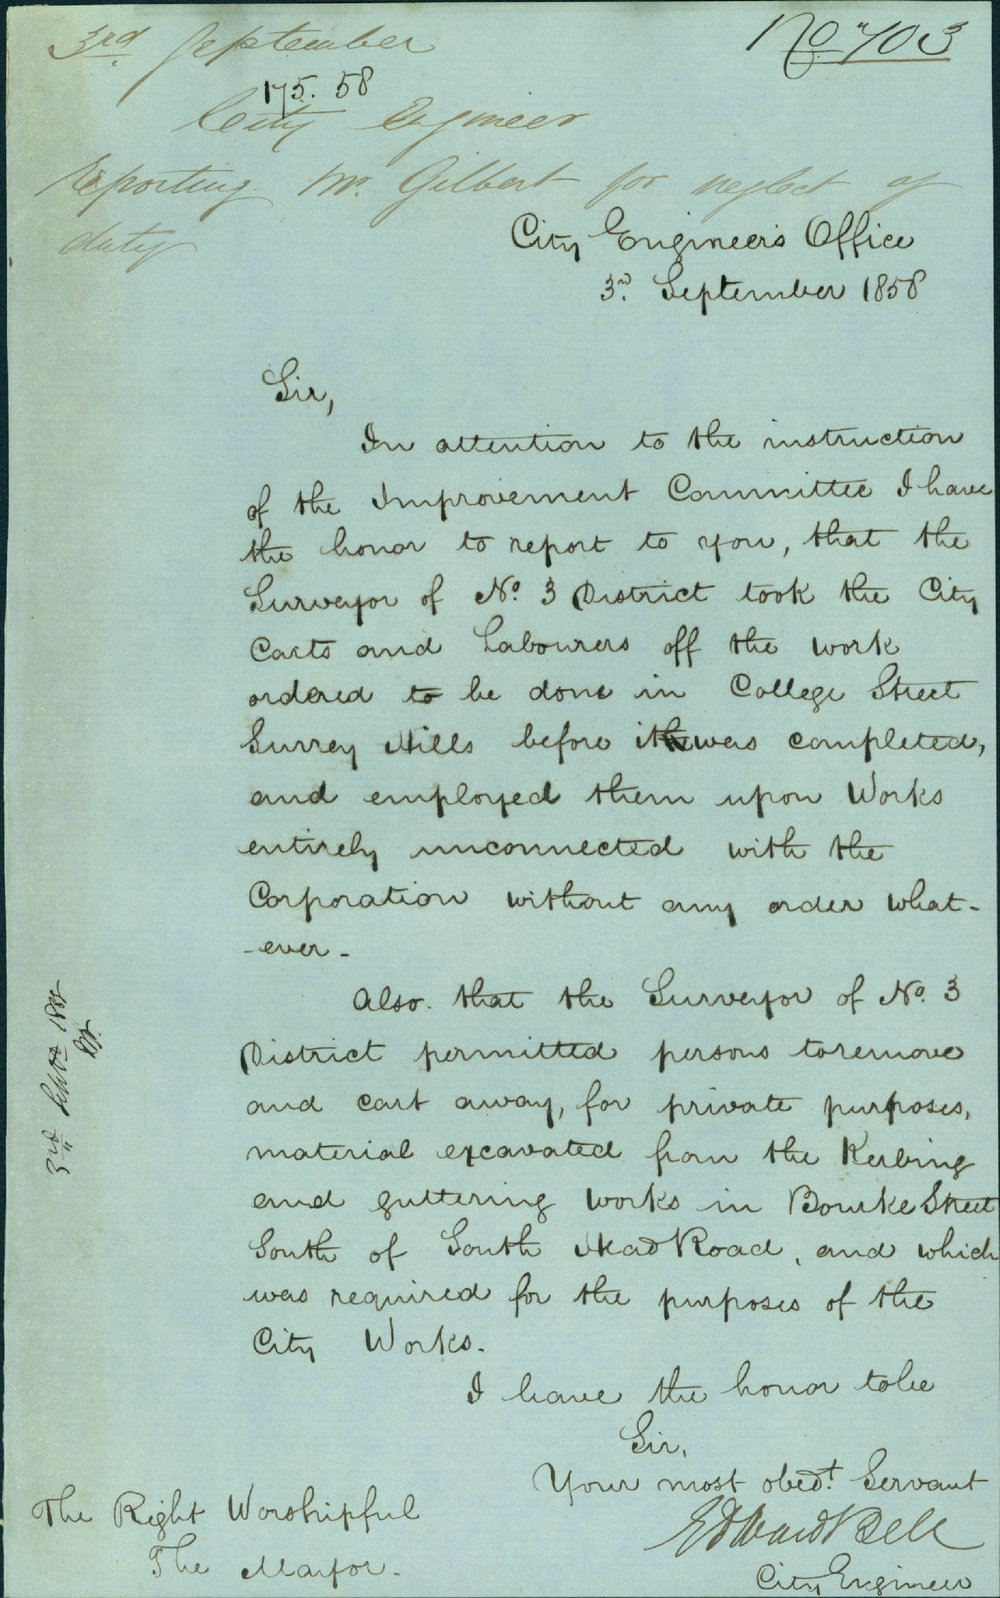 3rd. September
No. 703
175. 58
City Engineer
Reporting Mr. Gilbert for neglect of
duty
City Engineer's Office
3rd. September 1858
Sir,
In attention to the instruction
of the Improvement Committee I have
the honor to report to you, that the
Surveyor of No. 3 District took the City
Carts and Labourers off the work
ordered to be done in College Street
Surrey Hills before it was completed,
and employed them upon Works
entirely unconnected with the
Corporation without any order what-
-ever-
Also. that the Surveyor of No. 3
District permitted persons to remove
and cart away, for private purposes,
material excavated from the Kerbing
and guttering works in Bourke Street
South of South Head Road, and which
was required for the purposes of the
City Works.
I have the honor to be
Sir,
Your most obedt. Servant
Edward Bell
City Engineer
The Right Worshipful
The Mayor.
3rd Septr. 1858